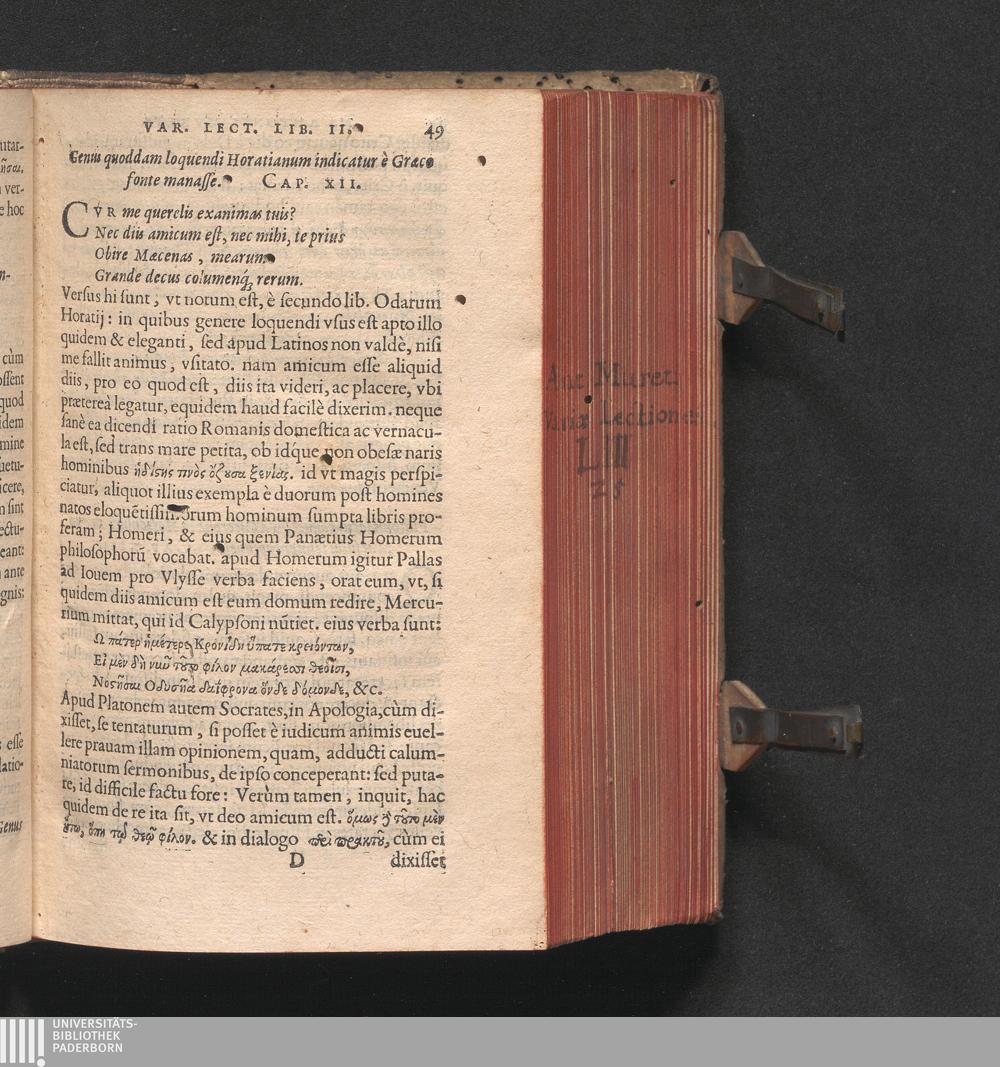 VAR. LECT. LIB. II. 49
Genus quoddam loquendi Horatianum indicatur è Græco
fonte manasse. CAP. XII.
CVR me querelis exanimas tuis?
Nec diis amicum est, nec mihi, te prius
Obire Mæcenas, mearum
Grande decus columenq́, rerum.
Versus hi sunt, vt notum est, è secundo lib. Odarum
Horatij: in quibus genere loquendi vsus est apto illo
quidem & eleganti, sed apud Latinos non valdè, nisi
me fallit animus, vsitato. nam amicum esse aliquid
diis, pro eo quod est, diis ita videri, ac placere, vbi
prætereà legatur, equidem haud facilè dixerim. neque
sanè ea dicendi ratio Romanis domestica ac vernacu-
la est, sed trans mare petita, ob idq́ue non obesæ naris
hominibus ἡδίστης τινὸς ὄζουσα ξενίας. id vt magis perspi-
ciatur, aliquot illius exempla è duorum post homines
natos eloquẽtissimorum hominum sumpta libris pro-
feram; Homeri, & eius quem Panætius Homerum
philosophorũ vocabat. apud Homerum igitur Pallas
ad Iouem pro Vlysse verba faciens, orat eum, vt, si
quidem diis amicum est eum domum redire, Mercu-
rium mittat, qui id Calypsoni nũtiet. eius verba sunt:
Ω πάτερ ἡμέτερε Κρονίδη ὕπατε κρειόντων,
Εἰ μὲν δὴ νιῦ τοῦτο φίλον μακάρεσσι θεοῖσι,
Νοστῆσαι Οδυσῆα δαΐφρονα ὅνδε δόμονδε, &c.
Apud Platonem autem Socrates, in Apologia, cùm di-
xisset, se tentaturum, si posset è iudicum animis euel-
lere prauam illam opinionem, quam, adducti calum-
niatorum sermonibus, de ipso conceperant: sed puta-
re, id difficile factu fore: Verùm tamen, inquit, hac
quidem de re ita sit, vt deo amicum est. ὅμως δὲ τοῦτο μὲν
ἴτω, ὅπη τῷ θεῷ φίλον. & in dialogo περὶ πρακτοῦ, cùm ei
D dixisset
utar-
ver-
e hoc
cùm
ossent
quod
idem
mine
uetu-
icere,
n sint
ectu-
eant:
ante
gnis:
esse
latio-
Genus
Ant Mureti
Variæ Lectiones
LIII
25
UNIVERSITÄTS-
BIBLIOTHEK
PADERBORN